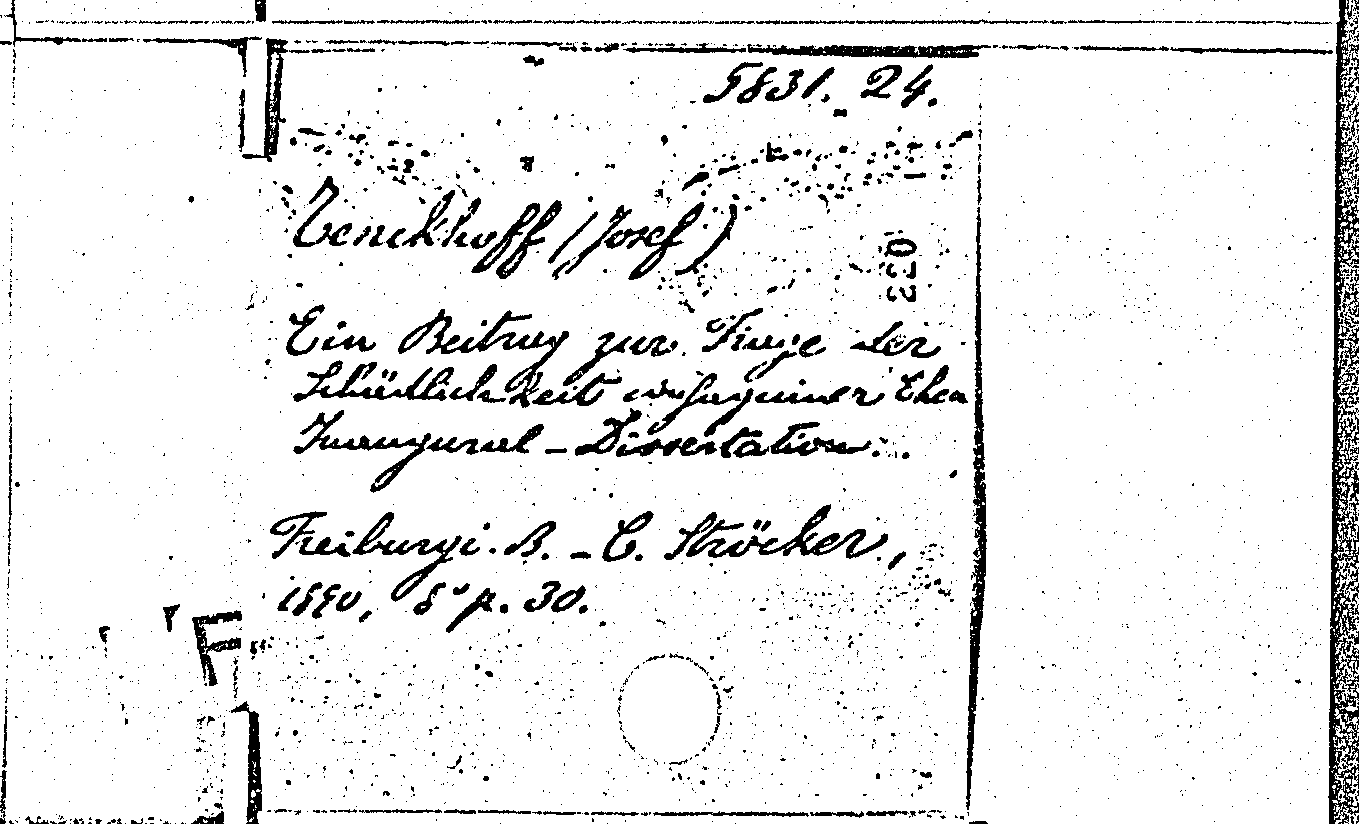 5831. 24.
Tenckhoff (Josef)
033
Ein Beitrag zur Frage der
Schädlichkeit consaguiner Ehen
Inaugural - Dissertation...
Freiburg i. B. - C. Ströcker,
1890, 8° p. 30.